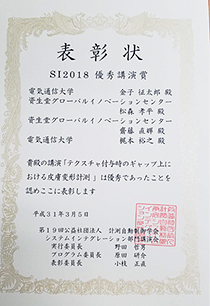 表彰状
SI2018 優秀講演賞
電気通信大学 金子 征太郎 殿
資生堂グローバルイノベーションセンター
松森 孝平 殿
資生堂グローバルイノベーションセンター
齋藤 直輝 殿
電気通信大学 梶本 裕之 殿
貴殿の講演「テクスチャ付与時のギャップ上に
おける皮膚変形計測」は優秀であったことを
認めここに表彰します
平成31年3月5日
第19回公益社団法人 計測自動制御学会
システムインテグレーション部門講演会
実行委員長 野田 哲男
プログラム委員長 原田 研介
表彰委員長 小枝 正直